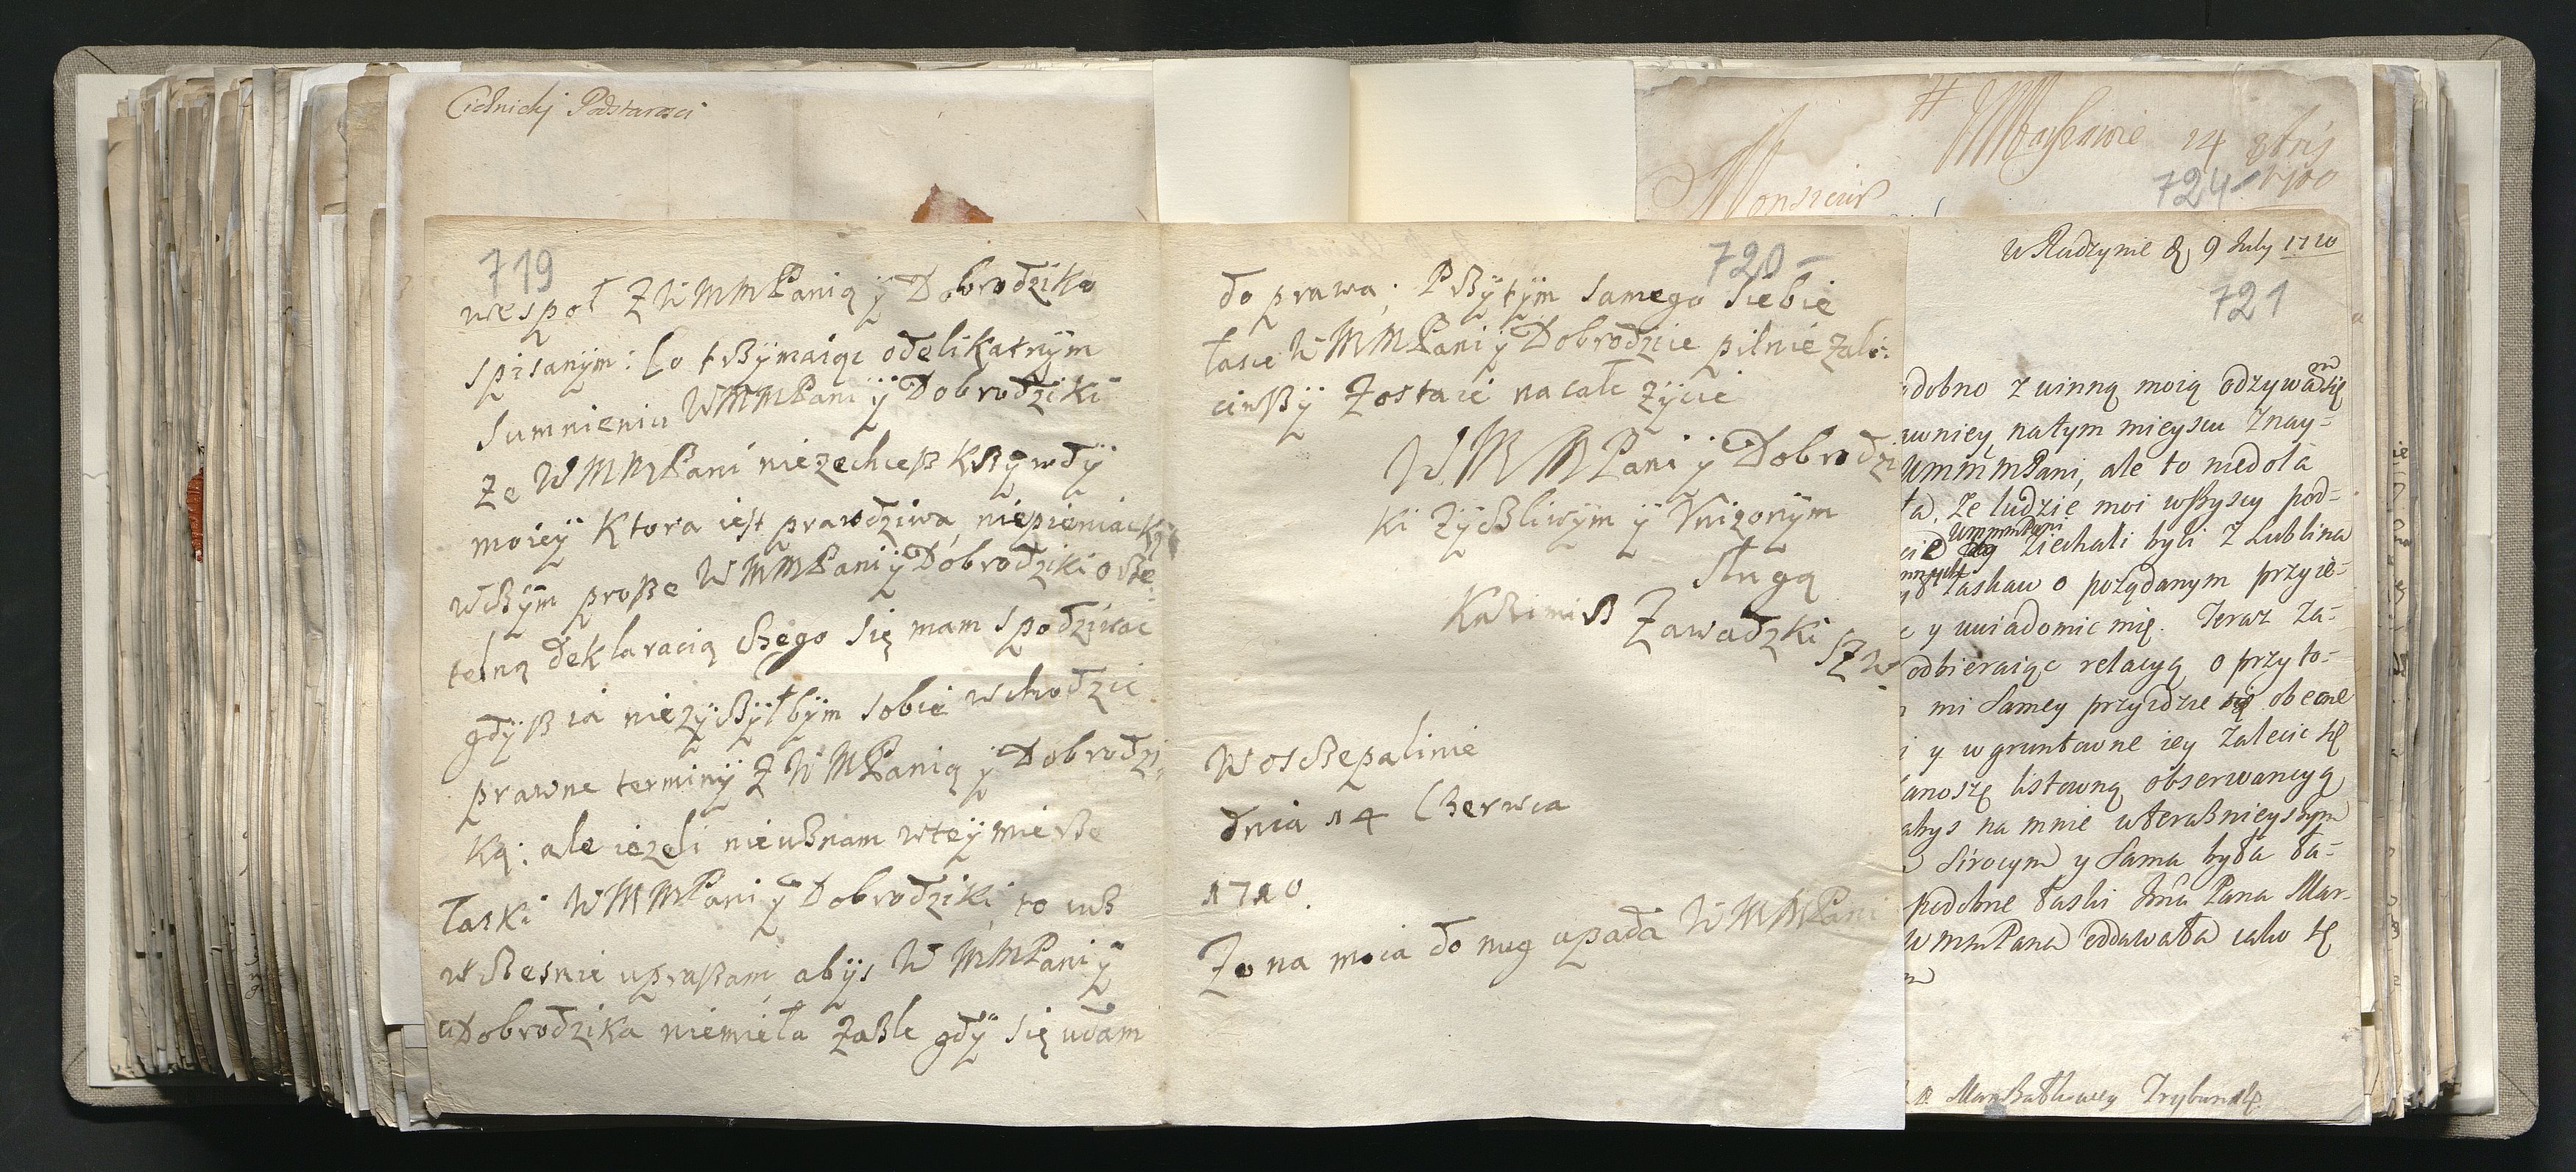 Cichnickj Podstarosci
719
wespoł Z WMMPanią ÿ Dobrodzika
spisanÿm: Co trzÿmaiąc o delikatnÿm
Sumnieniu WMMPani ÿ Dobrodziki
że WMMPani niezechcesz krzÿwdÿ
moieÿ Ktora iest prawdziwa, niepieniacką
wczÿm prosze WMMPani ÿ Dobrodziki o rze
telną deklaracią Czego się mam spodziwac
gdÿsz ia nieżÿczÿłbÿm sobie wchodzic
prawne terminÿ Z WMPanią ÿ Dobrodzi
ką: ale ieżeli nieuznam wteÿ mierze
łaski WMMPani ÿ Dobrodziki, to iusz
wczesnie upraszam, abÿs WMMPani ÿ
Dobrodzika niemiała zazle gdÿ się udam
720
do prawa; Przÿtÿm samego siebie
łasce WMMPani ÿ Dobrodzice pilnie zale
ciwszÿ Zostaie na całe żÿcie
WMMPani ÿ Dobrodzi
ki Zÿczliwÿm ÿ Vniżonÿm
sługą
Kazimirz Zawadzki
SZW
W Osczepalinie
dnia 14 Czerwca
1710.
Zona moia do nug upada WMMPani
Warszawie 14 8bris
1700
724
Monsieur
W Radzynie d 9 July 1710
721
odobno z winną moią odzywa się
wniey natym mieyscu Znay-
WmmmPani, ale to niedola
ła, że ludzie moi wszyscy pod-
WmmmPani
Ziechali byli z Lublina
łaskaw o pożądanym przyie-
y uwiadomic mię. Teraz Za-
odbieraiąc relacyą o przyto-
mi samey przyidzie obecne
y w gruntowne iey Zalecic się
anoszę listowną obserwancyą
abys na mnie uterasnieyszym
Sirocym y sama była ła-
podobne łaski Jmci Pana Mar-
WmmPana oddawała iako się
Marszałkowey Trybunalsk